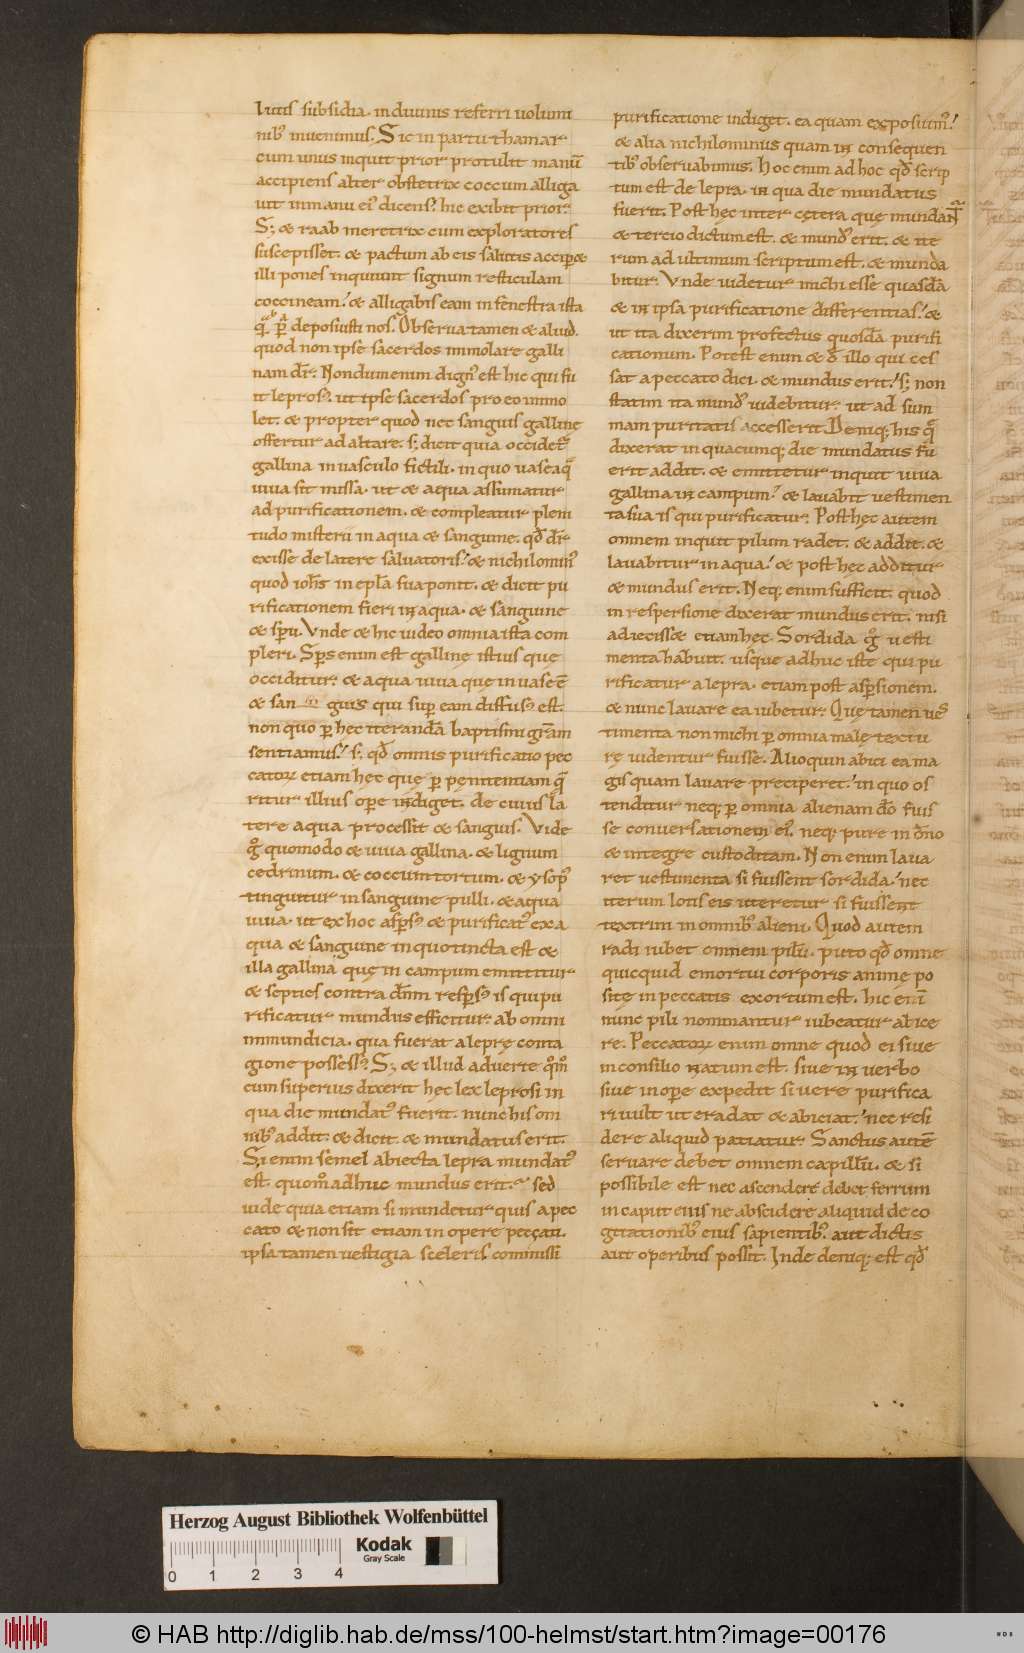 lutis subsidia. in diuinis referri uolumi
nibꝰ inuenimus. Sic in partu thamar
cum unus inquit prior protulit manū
accipiens alter obstetrix coccum alliga
uit in manu eiꝰ dicens. hic exibit prior.
S; & raab meretrix cum exploratores
suscepisset. & pactum ab eis salutis accip&
illi pones inquiunt signum resticulam
coccineam. & alligabis eam in fenestra ista
deposuisti nos. Obserua tamen & aliud.
quod non ipse sacerdos immolare galli
nam dr̄. Nondum enim dignꝰ est hic qui fu
it leprosꝰ. ut ipse sacerdos pro eo immo
let. & propter quod nec sanguis galline
offertur ad altare. s; dicit quia occidet
gallina in uasculo fictili. in quo uase aq̄
uiua sit missa. ut & aqua assumatur
ad purificationem. & compleatur pleni
tudo misterii in aqua & sanguine. qd̄ dr̄
exisse de latere saluatoris. & nichilominꝰ
quod ioh̄s in epl̄a sua ponit. & dicit pu
rificationem fieri in aqua. & sanguine
& sp̄u. Vnde & hic uideo omnia ista com
pleri. Sp̄s enim est galline istius quę
occiditur. & aqua uiua que in uase ē
& san guis qui sup̄ eam diffusꝰ est.
non quo p̄ hec iterandā baptismi gr̄am
sentiamus. s; qd̄ omnis purificatio pec
catoꝝ etiam hęc quę p̄ pęnitentiam quę
ritur illius ope indiget. de cuius la
tere aqua processit & sanguis. Vide
g̊ quomodo & uiua gallina. & lignum
cedrinum. & coccum tortum. & ysopꝰ
tinguitur in sanguine pulli. & aqua
uiua. ut ex hoc asp̄sꝰ & purificatꝰ ex a
qua & sanguine in quo tincta est &
illa gallina quę in campum emittitur
& septies contra dn̄m resp̄sꝰ is qui pu
rificatur mundus efficitur. ab omni
immundicia. qua fuerat a leprę conta
gione possessꝰ. S; & illud aduerte qm̄
cum superius dixerit hec lex leprosi in
qua die mundatꝰ fuerit. nunc his om
nibꝰ addit. & dicit. & mundatus erit.
Si enim semel abiecta lepra mundatꝰ
est. quom̊ adhuc mundus erit. sed
uide quia etiam si mundetur quis a pec
cato & non sit etiam in opere peccati.
ipsa tamen uestigia sceleris commissi
purificatione indiget. ea quam exposuimꝰ.
& alia nichilominus quam in consequen
tibꝰ obseruabimus. Hoc enim ad hoc qd̄ scrip
tum est de lepra. in qua die mundatus
fuerit. Post hęc inter cętera quę mundant
& tercio dictum est. & mundꝰ erit. & ite
rum ad ultimum scriptum est. & munda
bitur. Vnde uidetur michi esse quasdā
& in ipsa purificatione differentias. &
ut ita dixerim profectus quosdā purifi
cationum. Potest enim & d̄ illo qui ces
sat a peccato dici. & mundus erit. s; non
statim ita mundꝰ uidebitur. ut ad sum
mam puritatis accesserit. Deniq; his q̄
dixerat in quacumq; die mundatus fu
erit addit. & emittetur inquit uiua
gallina in campum. & lauabit uestimen
ta sua is qui purificatur. Post hęc autem
omnem inquit pilum radet. & addit. &
lauabitur in aqua. & post hęc additur
& mundus erit. Neq; enim sufficit. quod
in respersione dixerat mundus erit. nisi
adiecisset etiam hec. Sordida g̊ uesti
menta habuit. usque adhuc iste qui pu
rificatur a lepra. etiam post asp̄sionem.
& nunc lauare ea iubetur. Quę tamen ues
timenta non michi p̄ omnia male textu
rę uidentur fuisse. Alioquin abici ea ma
gis quam lauare preciperet. in quo os
tenditur neq; p̄ omnia alienam a d̄o fuis
se conuersationem eiꝰ. neq; pure in om̄o
& integre custoditam. Non enim laua
ret uestimenta si fuissent sordida. nec
iterum lotis eis uteretur si fuissent
textrini in omnibꝰ alieni. Quod autem
radi iubet omnem pilū. puto qd̄ omne
quicquid emortui corporis animę po
sitę in peccatis exortum est. hic enī
nunc pili nominantur iubeatur abice
re. Peccatoꝝ enim omne quod ei siue
in consilio natum est. siue in uerbo
siue in ope expedit si uere purifica
ri uult ut eradat & abiciat. nec resi
dere aliquid patiatur. Sanctus autē
seruare debet omnem capillū. & si
possibile est nec ascendere debet ferrum
in caput eius ne abscidere aliquid de co
gitationibꝰ eius sapientibꝰ. aut dictis
aut operibus possit. Inde deniq; est qd̄
Herzog August Bibliothek Wolfenbüttel
0 1 2 3 4
Kodak
Gray Scale
© HAB http://diglib.hab.de/mss/100-helmst/start.htm?image=00176